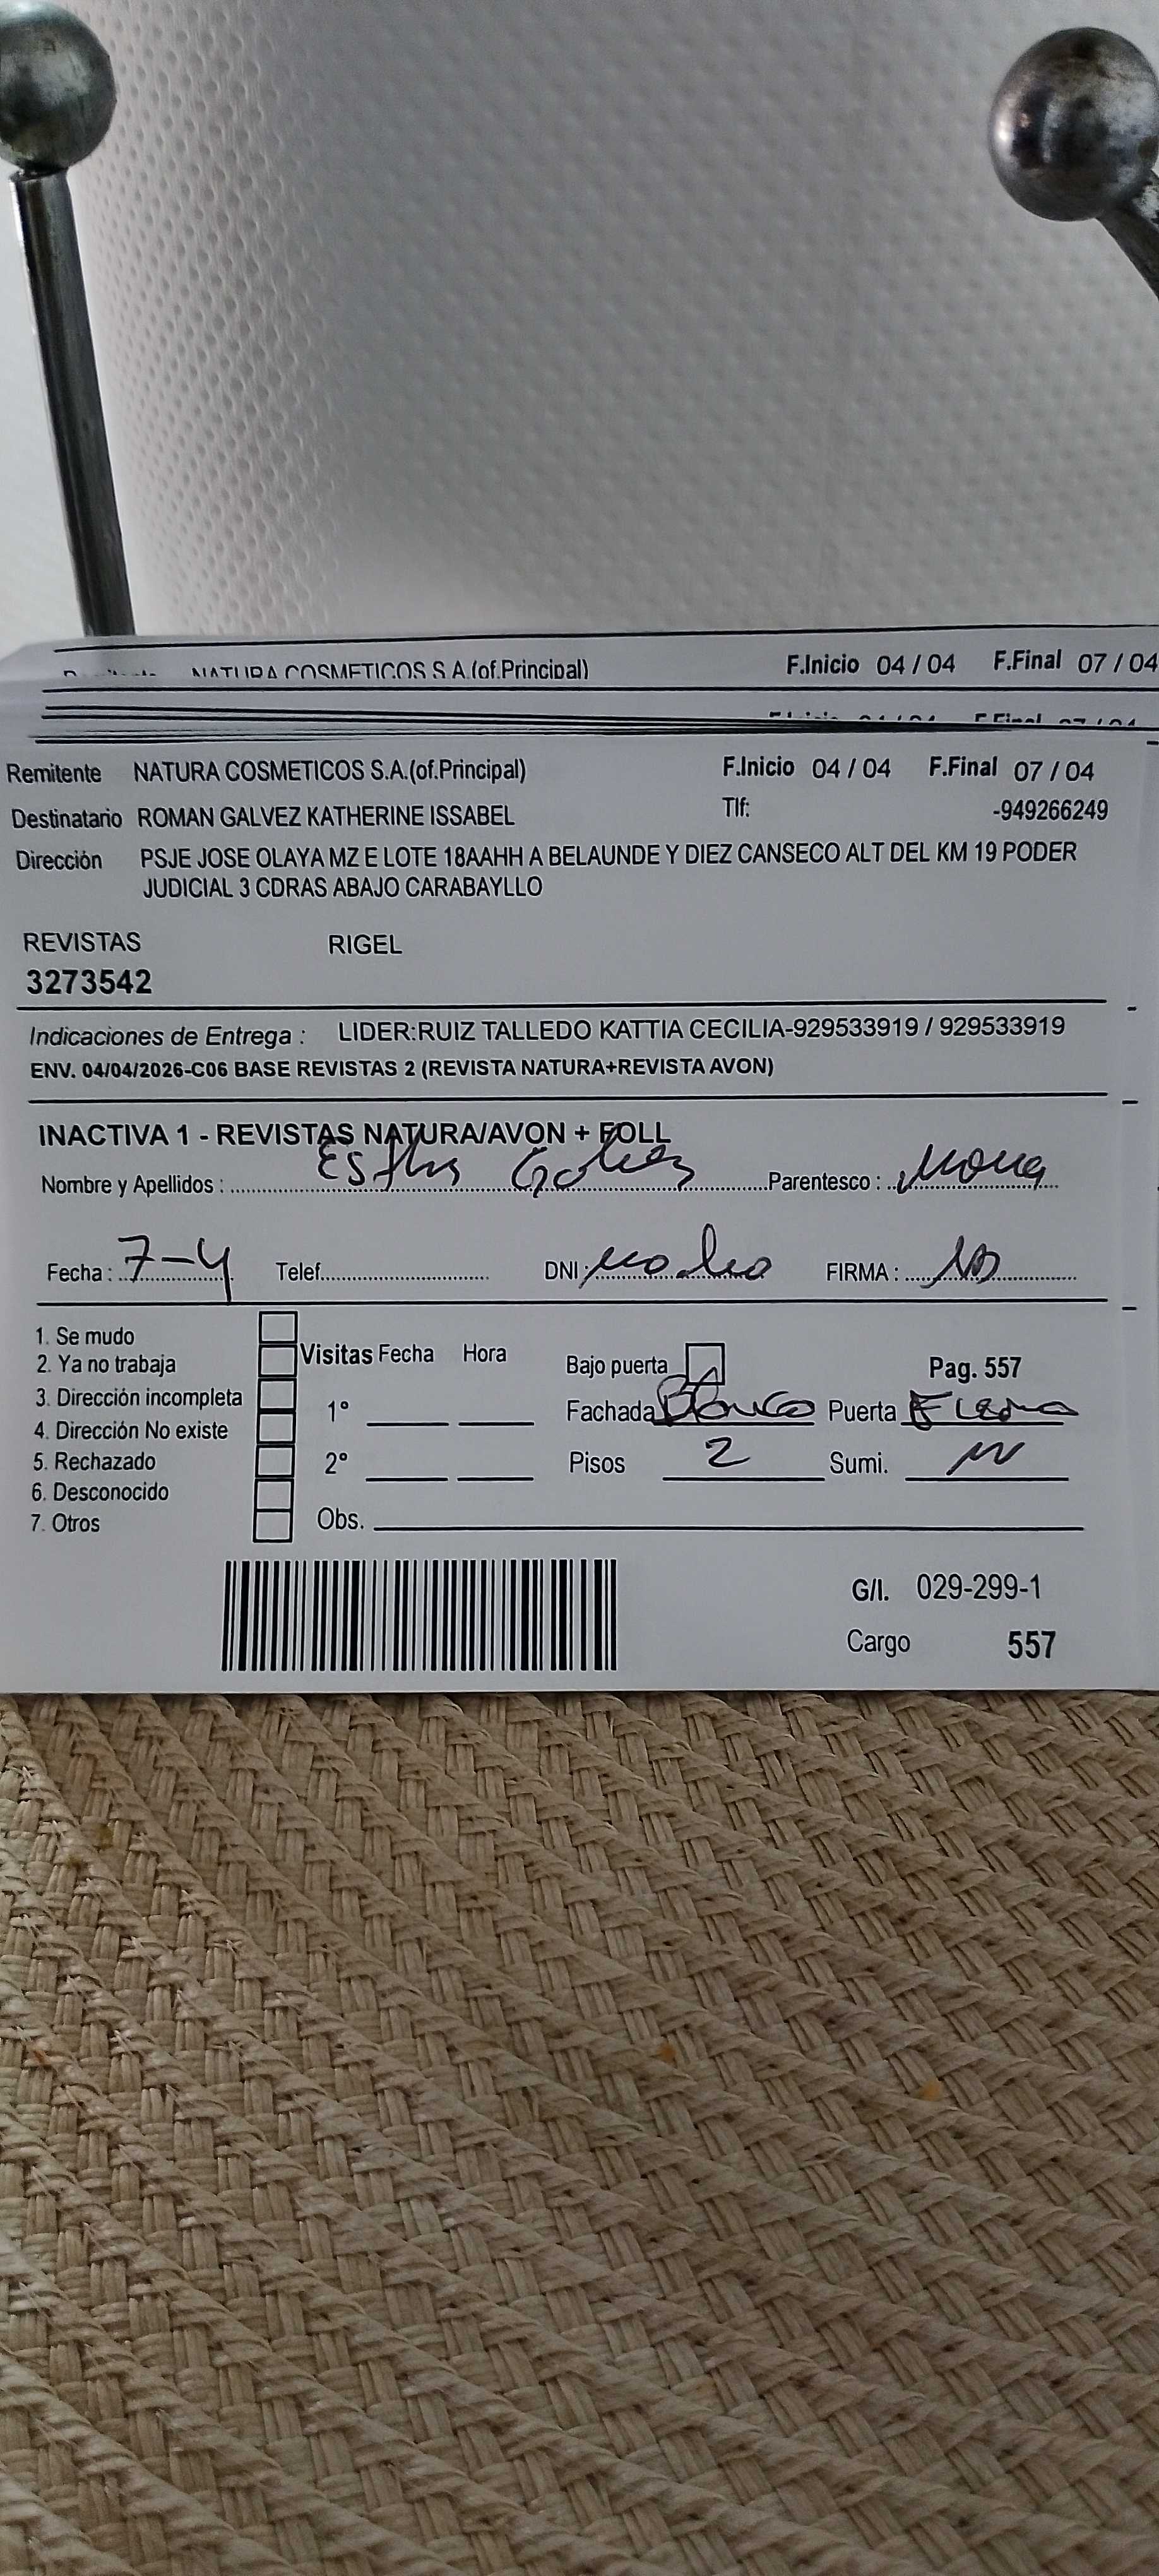 NATURA COSMETICOS S.A.(of.Principal) F.Inicio 04 / 04 F.Final 07 / 04
Remitente NATURA COSMETICOS S.A.(of.Principal) F.Inicio 04 / 04 F.Final 07 / 04
Destinatario ROMAN GALVEZ KATHERINE ISSABEL Tlf: -949266249
Dirección PSJE JOSE OLAYA MZ E LOTE 18AAHH A BELAUNDE Y DIEZ CANSECO ALT DEL KM 19 PODER
JUDICIAL 3 CDRAS ABAJO CARABAYLLO
REVISTAS RIGEL
3273542
Indicaciones de Entrega : LIDER:RUIZ TALLEDO KATTIA CECILIA-929533919 / 929533919
ENV. 04/04/2026-C06 BASE REVISTAS 2 (REVISTA NATURA+REVISTA AVON)
INACTIVA 1 - REVISTAS NATURA/AVON + FOLL
Nombre y Apellidos : Parentesco :
Fecha : 7-4 Telef. DNI : FIRMA :
1. Se mudo
2. Ya no trabaja
3. Dirección incompleta
4. Dirección No existe
5. Rechazado
6. Desconocido
7. Otros
Visitas Fecha Hora
1°
2°
Obs.
Bajo puerta Pag. 557
Fachada Blanco Puerta
Pisos 2 Sumi.
G/I. 029-299-1
Cargo 557